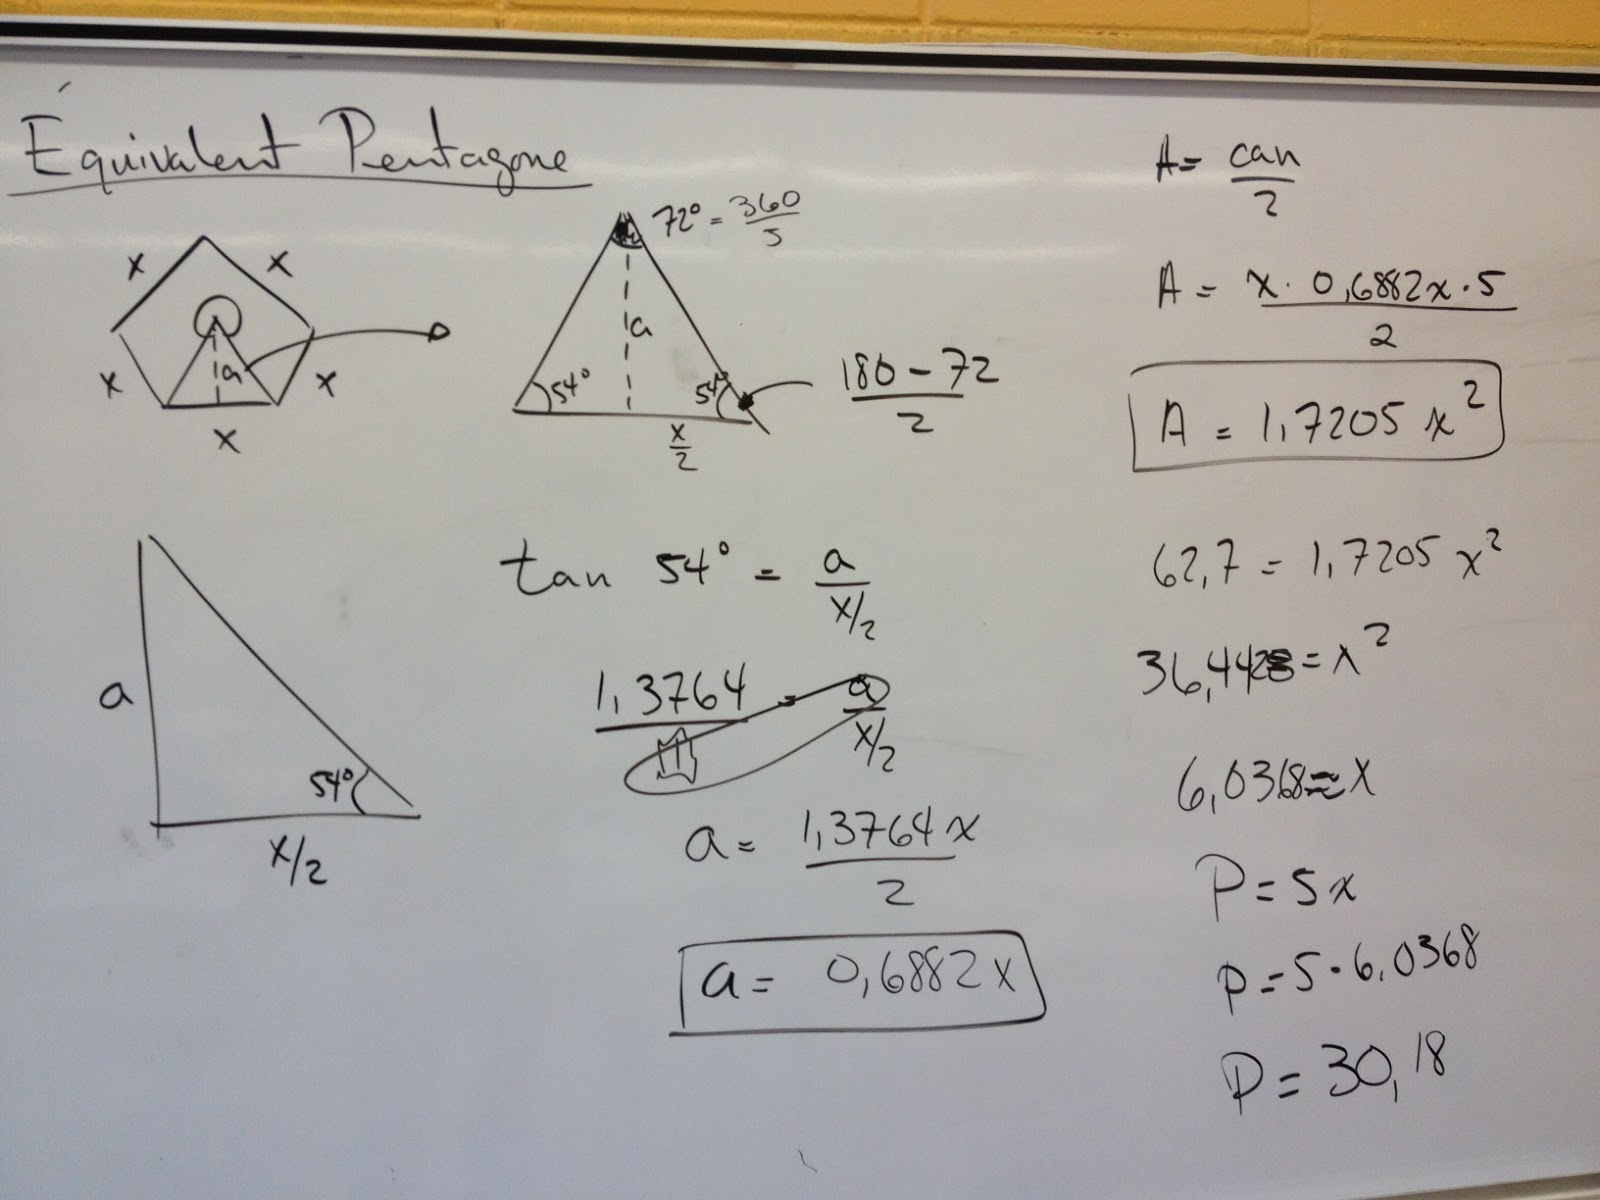 Équivalent Pentagone
x x
x a x
x
72° = 360/5
a
54° 54°
x/2
180 - 72 / 2
a
54°
x/2
tan 54° = a / x/2
1,3764 / 1 = a / x/2
a = 1,3764x / 2
a = 0,6882x
A = can / 2
A = x · 0,6882x · 5 / 2
A = 1,7205 x²
62,7 = 1,7205 x²
36,4428 = x²
6,0368 ≈ x
P = 5x
P = 5 · 6,0368
P = 30,18